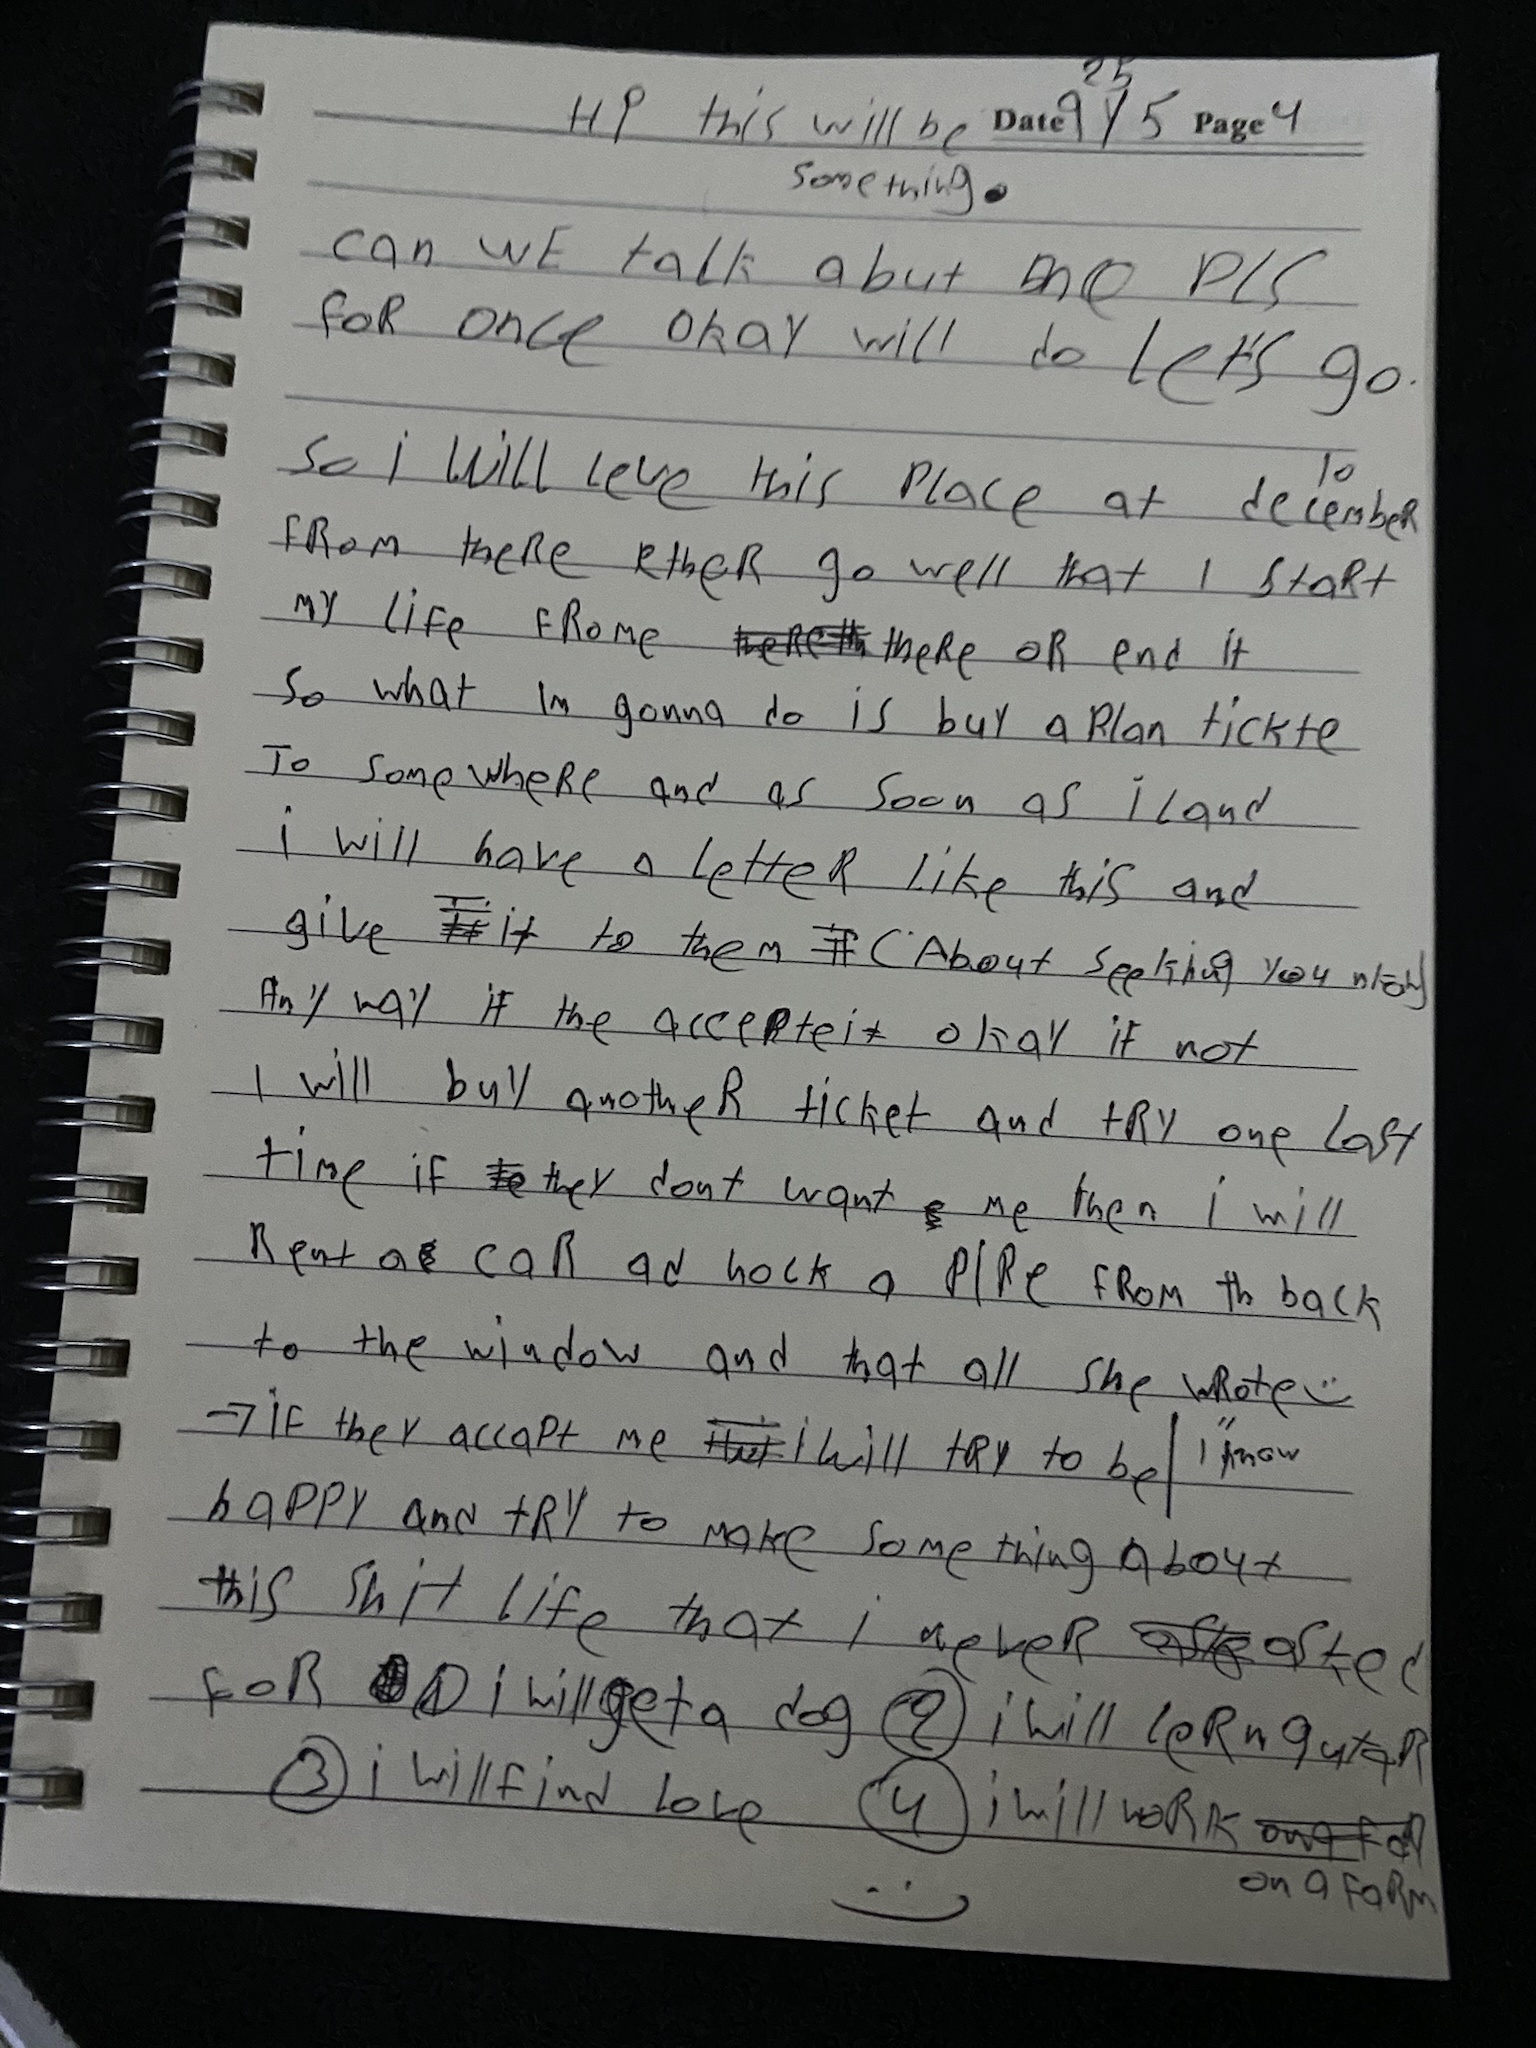 25
HP this will be Date 9/5 Page 4
something.
can WE talk abut me pls
foR once okay will do let's go.
so i will leve this place at december 10
fRom theRe etheR go well that I staRt
my life fRome theRe oR end it
so what Im gonna do is buy a plan tickte
To somewheRe and as soon as i land
i will have a letteR like this and
give it to them (About seeking you
Any way if the accepteit okay if not
I will buy anotheR ticket and tRy one last
time if they dont want me then i will
Rent a caR ad hock a pipe fRom th back
to the window and that all she wRote :)
→ if they accapt me i will tRy to be | "i know
happy and tRy to make something about
this shit life that i neveR asked
foR ① i will get a dog ② i will leRn gutaR
③ i will find love ④ i will woRk
on a faRm
:)